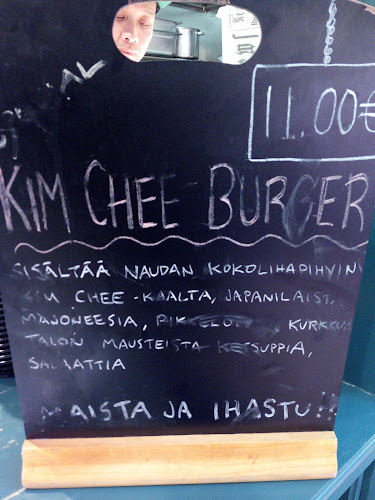 11.00€
KIM CHEE BURGER
SISÄLTÄÄ NAUDAN KOKOLIHAPIHVIN
KIM CHEE-KAALTA, JAPANILAIST.
MAJONEESIA, KURKKUA
TALON MAUSTEISTA KETSUPPIA,
SALAATTIA
MAISTA JA IHASTU!!